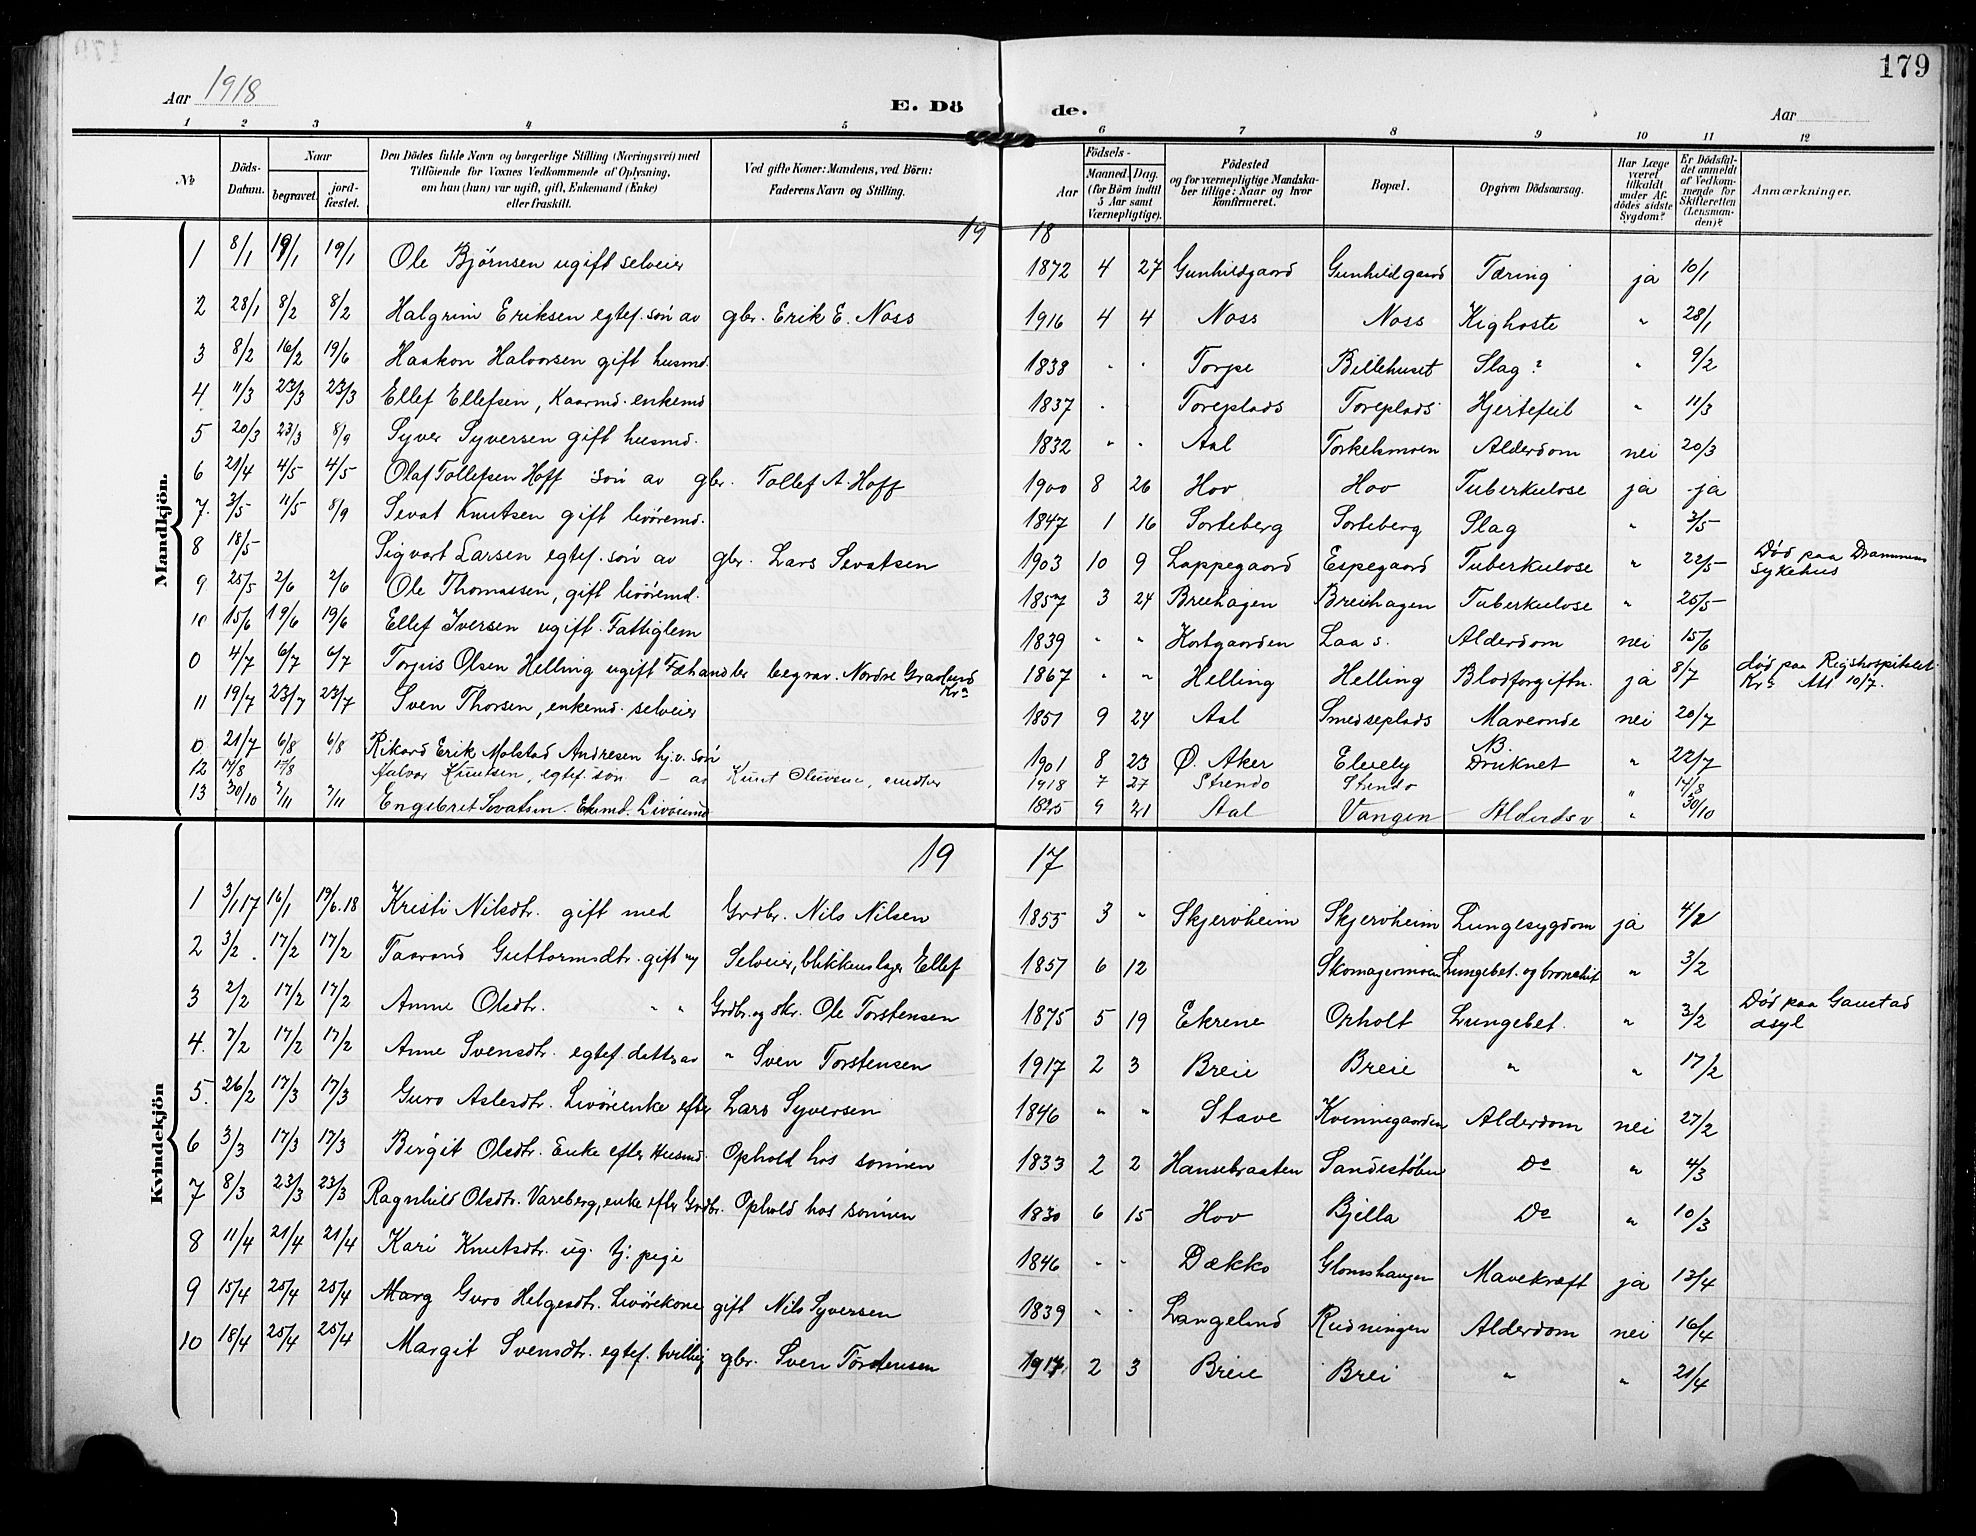 179
Aar 1918 E. Dö de. Aar
1 2 3 4 5 6 7 8 9 10 11 12
№ Döds-Datum. Naar begravet. jord-fæstet. Den Dödes fulde Navn og borgerlige Stilling (Næringsvei) med Tilföiende for Voxnes Vedkommende af Oplysning, om han (hun) var ugift, gift, Enkemand (Enke) eller fraskilt. Ved gifte Koner: Mandens, ved Börn: Faderens Navn og Stilling. Födsels- Aar Maaned. Dag. (for Börn indtil 5 Aar samt Værnepligtige). Födested og for værnepligtige Mandskaber tillige: Naar og hvor konfirmeret. Bopæl. Opgiven Dödsaarsag. Har Læge været tilkaldt under Afdödes sidste Sygdom? Er Dödsfaldet anmeldt af Vedkommende for Skifteretten (Lensmanden)? Anmærkninger.
Mandkjön.
19 18
1 8/1 19/1 19/1 Ole Bjørnsen ugift selveier 1872 4 27 Gunhildgaard Gunhildgaard Tæring ja 10/1
2 28/1 8/2 8/2 Halgrim Eriksen egtef. søn av gbr. Erik E. Noss 1916 4 4 Noss Noss Kighoste " 28/1
3 8/2 16/2 19/6 Haakon Halvorsen gift husmd. 1838 " " Torpe Billehuset Slag? " 9/2
4 11/3 23/3 23/3 Ellef Ellefsen, Kaarmd. enkemd 1837 " " Toreplads Toreplads Hjertefeil " 11/3
5 20/3 23/3 8/9 Syver Syversen gift husmd. 1832 " " Aal Torkelsmoen Alderdom nei 20/3
6 21/4 4/5 4/5 Olaf Tollefsen Hoff søn av gbr. Tollef A. Hoff 1900 8 26 Hov Hov Tuberkulose ja ja
7. 3/5 11/5 8/9 Sevat Knutsen gift livøremd. 1847 1 16 Sorteberg Sorteberg Slag " 3/5
8 18/5 Sigvart Larsen egtef. søn av gbr. Lars Sevatsen 1903 10 9 Lappegaard Espegaard Tuberkulose " 22/5 Død paa Drammens Sykehus
9 25/5 2/6 2/6 Ole Thomassen, gift livøremd. 1857 3 24 Breihagen Breihagen Tuberkulose " 25/5
10 15/6 19/6 19/6 Ellef Iversen ugift Fattiglem 1839 " " Kortgaarden Laa s. Alderdom nei 15/6
0 4/7 6/7 6/7 Torjus Olsen Helling ugift Fæhandler begrav. Nordre Gravlund Kra 1867 " " Helling Helling Blodforgiftn. ja 8/7 død paa Rigshospitalet Kra Att. 10/7.
11 19/7 23/7 23/7 Sven Thorsen, enkemd. selveier 1851 9 24 Aal Smedseplads Maveonde nei 20/7
0 21/7 6/8 6/8 Rikard Erik Molstad Andresen hj.v. søn 1901 8 23 Ø. Aker Elvely NB. Druknet " 22/7
12 14/8 17/8 Halvor Knutsen, egtef. søn av Knut 1918 7 27 Strendo Strendo " 14/8
13 30/10 7/11 7/11 Engebret Sevatsen Ekemd. Livøremd 1825 9 21 Aal Vangen " 30/10
Kvindekjön
19 17
1 3/1 17 16/1 19/6.18 Kristi Nilsdtr. gift med Grdbr. Nils Nilsen 1855 3 " Skjervheim Skjervheim Lungesygdom ja 4/2
2 3/2. 17/2 17/2 Taarand Guttormsdtr. gift " Selveier, blikkenslager Ellef 1857 6 12 Skomagermoen Lungebet. og bronchit " 3/2
3 2/2 17/2 17/2 Anne Olsdtr. " " Grdbr. og skr. Ole Torstensen 1875 5 19 Ekrene Orholt Lungebet. " 3/2 Død paa Gaustad asyl
4. 7/2 17/2 17/2 Anne Svensdtr. egtef. datter av " Sven Torstensen 1917 2 3 Breie Breie " " 17/2
5. 26/2 17/3 17/3 Guro Aslesdtr. Livøreenke efter Lars Syversen 1846 " " Stave Kvinnegaarden Alderdom nei 27/2
6 3/3 17/3 17/3 Birgit Olsdtr. Enke efter Husmd. Ophold hos sønnen 1833 2 2 Hansebraaten Sandestølen Do " 4/3
7 8/3 23/3 23/3 Ragnhild Olsdtr. Vareberg, enke efter Grdbr. Ophold hos sønnen 1830 6 15 Hov Bjella Do " 10/3
8 11/4 21/4 21/4 Kari Knutsdtr. ug. tj. pige 1846 " " Dækko Glomshaugen Mavekræft ja 13/4
9 15/4 25/4 25/4 Marg Guro Helgesdtr. Livørekone gift Nils Syversen 1839 " " Langelind Rudningen Alderdom nei 16/4
10 18/4 25/4 25/4 Margit Svensdtr. egtef. tvilling gbr. Sven Torstensen 1917 2 3 Breie Brei " " 21/4